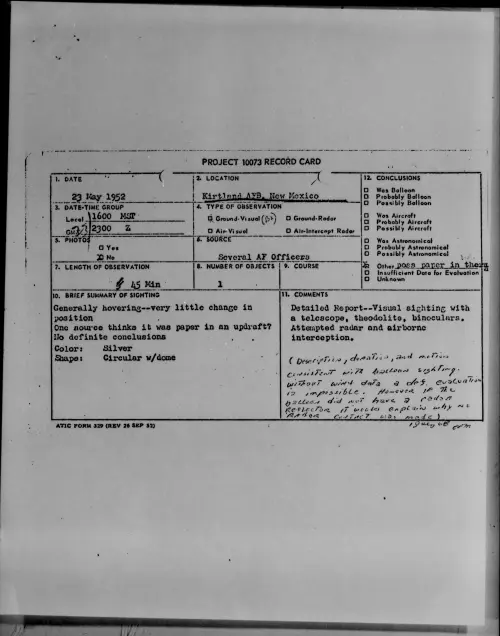 PROJECT 10073 RECORD CARD
1. DATE
23 May 1952
2. LOCATION
Kirtland AFB, New Mexico
3. DATE-TIME GROUP
Local 1600 MST
2300 Z
4. TYPE OF OBSERVATION
Ground-Visual
Ground-Radar
Air-Visual
Air-Intercept Radar
5. PHOTOS
Yes
No
6. SOURCE
Several AF Officers
7. LENGTH OF OBSERVATION
45 Min
8. NUMBER OF OBJECTS
1
9. COURSE
10. BRIEF SUMMARY OF SIGHTING
Generally hovering--very little change in
position
One source thinks it was paper in an updraft?
No definite conclusions
Color: Silver
Shape: Circular w/dome
11. COMMENTS
Detailed Report--Visual sighting with
a telescope, theodolite, binoculars.
Attempted radar and airborne
interception.
(Description, duration, and motion
consistent with balloon sighting.
without wind data a def. evaluation
is impossible. However if the
balloon did not have a radar
reflector it would explain why no
radar contact was made)
12. CONCLUSIONS
Was Balloon
Probably Balloon
Possibly Balloon
Was Aircraft
Probably Aircraft
Possibly Aircraft
Was Astronomical
Probably Astronomical
Possibly Astronomical
Other poss paper in therm
Insufficient Data for Evaluation
Unknown
ATIC FORM 329 (REV 26 SEP 52)